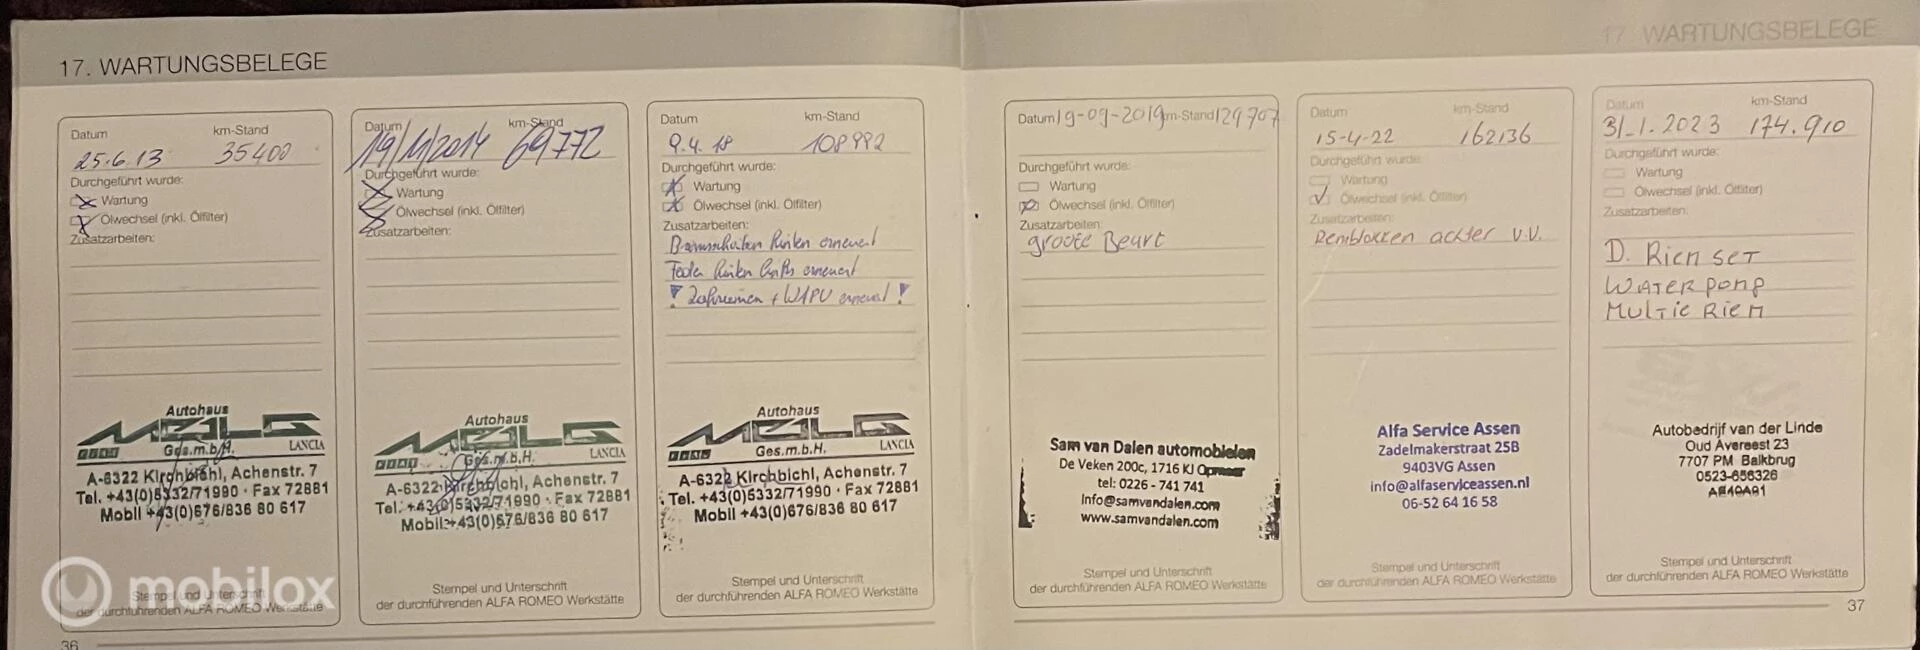 17. WARTUNGSBELEGE
Datum km-Stand
25.6.13 35400
Durchgeführt wurde:
Wartung
Ölwechsel (inkl. Ölfilter)
Zusatzarbeiten:
Autohaus
MOLG
Ges.m.b.H.
FIAT LANCIA
A-6322 Kirchbichl, Achenstr. 7
Tel. +43(0)5332/71990 · Fax 72881
Mobil +43(0)676/836 80 617
Stempel und Unterschrift
der durchführenden ALFA ROMEO Werkstätte
Datum km-Stand
19/11/2014 69772
Durchgeführt wurde:
Wartung
Ölwechsel (inkl. Ölfilter)
Zusatzarbeiten:
Autohaus
MOLG
Ges.m.b.H.
FIAT LANCIA
A-6322 Kirchbichl, Achenstr. 7
Tel. +43(0)5332/71990 · Fax 72881
Mobil +43(0)676/836 80 617
Stempel und Unterschrift
der durchführenden ALFA ROMEO Werkstätte
Datum km-Stand
9.4.18 108992
Durchgeführt wurde:
Wartung
Ölwechsel (inkl. Ölfilter)
Zusatzarbeiten:
hinten erneuert
hinten erneuert
! Zahnriemen + WAPU erneuert !
Autohaus
MOLG
Ges.m.b.H.
FIAT LANCIA
A-6322 Kirchbichl, Achenstr. 7
Tel. +43(0)5332/71990 · Fax 72881
Mobil +43(0)676/836 80 617
Stempel und Unterschrift
der durchführenden ALFA ROMEO Werkstätte
36
17. WARTUNGSBELEGE
Datum 19-09-2019 km-Stand 129707
Durchgeführt wurde:
Wartung
Ölwechsel (inkl. Ölfilter)
Zusatzarbeiten:
groote Beurt
Sam van Dalen automobielen
De Veken 200c, 1716 KJ Opmeer
tel: 0226 - 741 741
info@samvandalen.com
www.samvandalen.com
Stempel und Unterschrift
der durchführenden ALFA ROMEO Werkstätte
Datum km-Stand
15-4-22 162136
Durchgeführt wurde:
Wartung
Ölwechsel (inkl. Ölfilter)
Zusatzarbeiten:
Remblokken achter v.v.
Alfa Service Assen
Zadelmakerstraat 25B
9403VG Assen
info@alfaserviceassen.nl
06-52 64 16 58
Stempel und Unterschrift
der durchführenden ALFA ROMEO Werkstätte
Datum km-Stand
31.1.2023 174.910
Durchgeführt wurde:
Wartung
Ölwechsel (inkl. Ölfilter)
Zusatzarbeiten:
D. Riem set
Waterpomp
Multie Riem
Autobedrijf van der Linde
Oud Avereest 23
7707 PM Balkbrug
0523-656326
Stempel und Unterschrift
der durchführenden ALFA ROMEO Werkstätte
37
mobilox